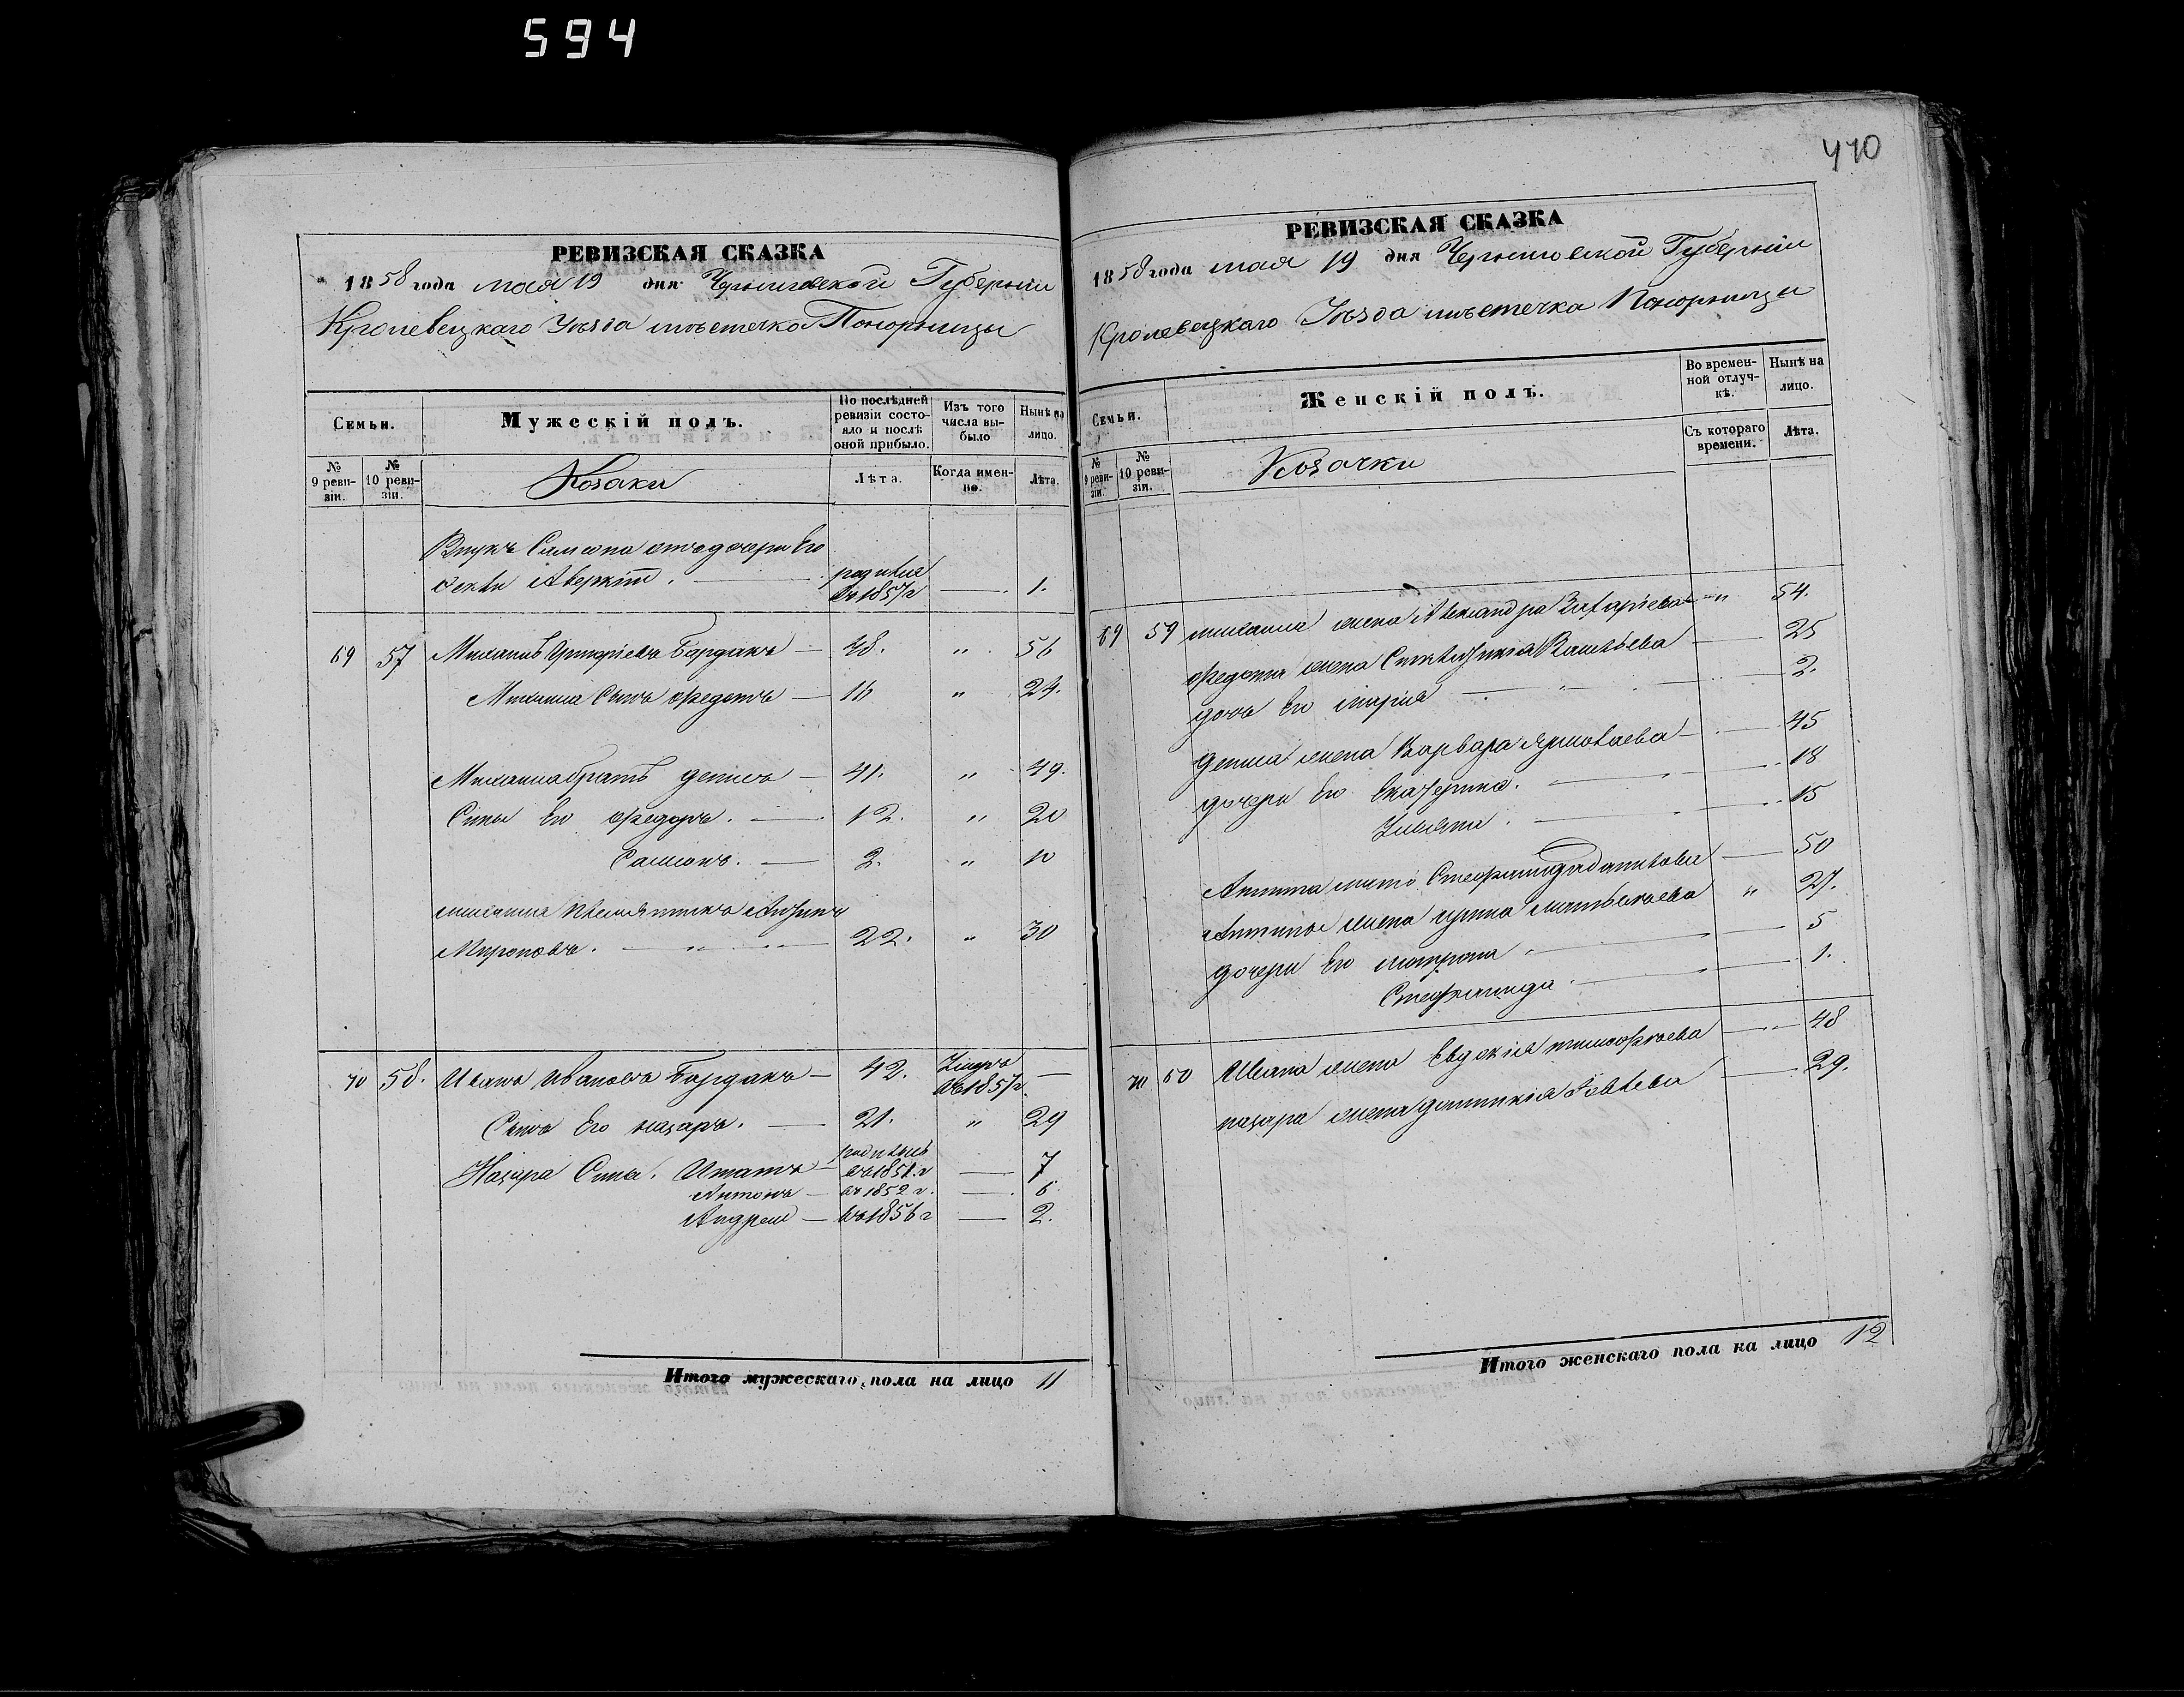 594
РЕВИЗСКАЯ СКАЗКА
1858 года мая 19 дня Черниговской Губерніи
Кролевецкаго Уѣзда мѣстечка Понорницы
Семьи.
Мужескій полъ.
По послѣдней ревизіи состояло и послѣ оной прибыло.
Изъ того числа выбыло
Нынѣ на лицо.
№ 9 ревизіи.
№ 10 ревизіи.
Козаки
Лѣта.
Когда именно.
Лѣта.
Внукъ Самсона отъ дочери Его
Аверкій. родился въ 1857 г 1.
69 57 Михаилъ Григорьевъ Бардакъ 48. " 56
Михаила Сынъ Федотъ 16 " 24.
Михаила братъ Денисъ 41. " 49.
Сыны Его Федоръ. 12. " 20
Самсонъ. 2. " 10
Михаила племянникъ Антипъ
Мироновъ. 22. " 30
70 58. Иванъ Ивановъ Бардакъ 42. Умеръ въ 1857 г. —
Сынъ Его Назаръ. 21. " 29
Назара Сыны. Игнатъ родился въ 1851. г 7
Антонъ въ 1852 г. 6
Андрей въ 1856 г 2.
Итого мужескаго пола на лицо 11
470
РЕВИЗСКАЯ СКАЗКА
1858 года мая 19 дня Черниговской Губерніи
Кролевецкаго Уѣзда мѣстечка Понорницы
Семьи.
Женскій полъ.
Во временной отлучкѣ.
Нынѣ на лицо.
№ 9 ревизіи.
№ 10 ревизіи.
Козачки
Съ котораго времени.
Лѣта.
69 57 Михаила жена Александра Захарьева " 54.
Федота жена Васильева 25
дочь Его Марія 2.
Дениса жена Варвара Ярмолаева 45
дочери Его Екатерина. 18
Ульяна. 15
Антипа мать Стефанида 50
Антипа жена Ирина " 27.
дочери Его Матрона 5
Стефанида 1.
70 58 Ивана жена Евдокія Тимофеева 48
Назара жена Домникія 29.
Итого женскаго пола на лицо 12